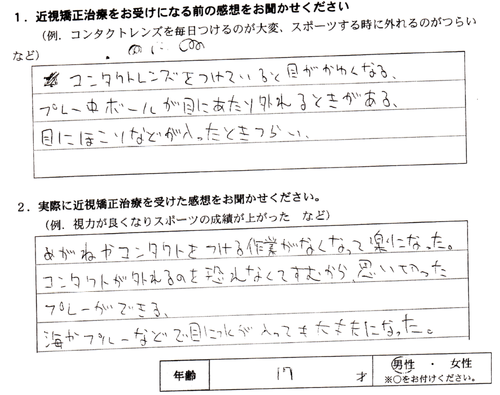 １．近視矯正治療をお受けになる前の感想をお聞かせください
（例．コンタクトレンズを毎日つけるのが大変、スポーツする時に外れるのがつらい
など）
コンタクトレンズをつけていると目がかわくなる、
プレー中ボールが目にあたり外れるときがある、
目にほこりなどが入ったときつらい、
２．実際に近視矯正治療を受けた感想をお聞かせください。
（例．視力が良くなりスポーツの成績が上がった　など）
めがねやコンタクトをつける作業がなくなって楽になった。
コンタクトが外れるのを恐れなくてすむから、思い切った
プレーができる、
海やプールなどで目に水が入っても大丈夫になった。
年齢　17　才　男性　・　女性
※○をお付けください。